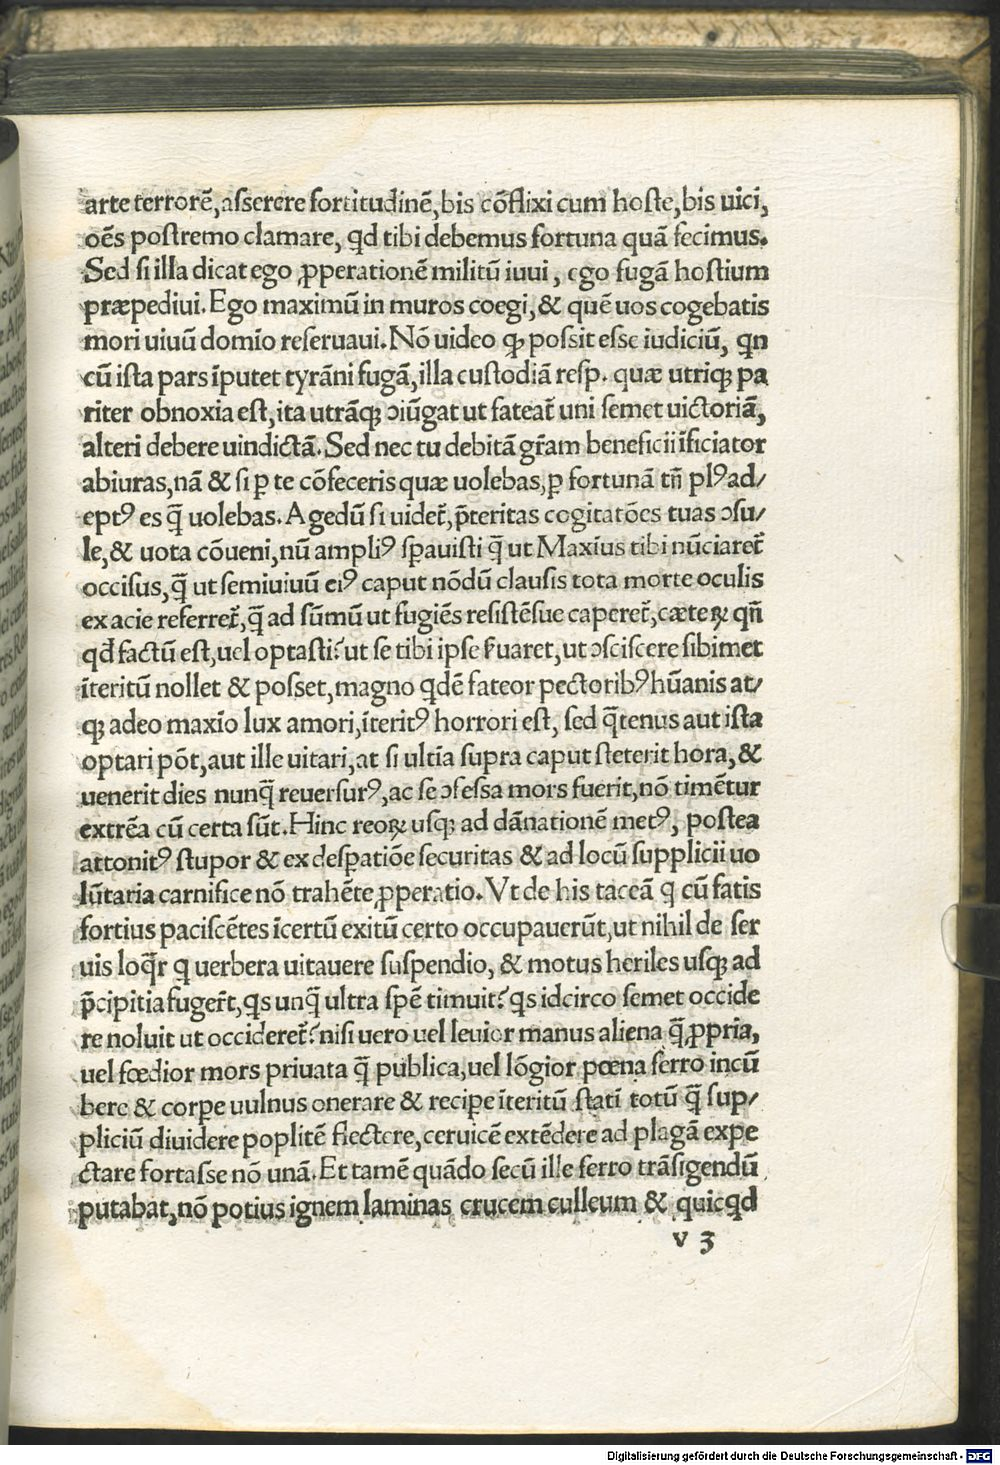 arte terrorē, asserere fortitudinē, bis cōflixi cum hoste, bis uici,
oēs postremo clamare, qd tibi debemus fortuna quā fecimus.
Sed si illa dicat ego ꝓperationē militū iuui, ego fugā hostium
præpediui. Ego maximū in muros coegi, & quē uos cogebatis
mori uiuū domīo reseruaui. Nō uideo ꝙ possit esse iudiciū, qn
cū ista pars īputet tyrāni fugā, illa custodiā resp. quæ utriqꝫ pa
riter obnoxia est, ita utrāqꝫ ↄiūgat ut fateat᷑ uni semet uictoriā,
alteri debere uindictā. Sed nec tu debitā gr̄am beneficii īficiator
abiuras, nā & si ꝑ te cōfeceris quæ uolebas, ꝑ fortunā tn̄ plꝰ ad/
eptꝰ es q̄ uolebas. Agedū si uidet᷑, p̄teritas cogitatōes tuas ↄsu/
le, & uota cōueni, nū ampliꝰ sꝑauisti q̄ ut Maxīus tibi nūciaret᷑
occisus, q̄ ut semiuiuū eiꝰ caput nōdū clausis tota morte oculis
ex acie referret᷑, q̄ ad sūmū ut fugiēs resistēsue caperet᷑, cæteꝝ qn̄
qd̄ factū est, uel optasti? ut se tibi ipse ẜuaret, ut ↄsciscere sibimet
īteritū nollet & posset, magno qdē fateor pectoribꝰ hūanis at/
qꝫ adeo maxīo lux amori, īteritꝰ horrori est, sed q̄tenus aut ista
optari pōt, aut ille uitari, at si ultīa supra caput steterit hora, &
uenerit dies nunq̄ reuersurꝰ, ac se ↄfessa mors fuerit, nō timētur
extrēa cū certa sūt. Hinc reoꝝ usqꝫ ad dānationē metꝰ, postea
attonitꝰ stupor & ex desꝑatiōe securitas & ad locū supplicii uo
lūtaria carnifice nō trahēte ꝓperatio. Vt de his taceā q cū fatis
fortius paciscētes īcertū exitū certo occupauerūt, ut nihil de ser
uis loq̄r q uerbera uitauere suspendio, & motus heriles usqꝫ ad
p̄cipitia fuger̄t, qs unq̄ ultra spē timuit? qs idcirco semet occide
re noluit ut occideret᷑? nisi uero uel leuior manus aliena q̄ ꝓpria,
uel fœdior mors priuata q̄ publica, uel lōgior pœna ferro incū
bere & corꝑe uulnus onerare & reciꝑe īteritū stati totū q̄ sup/
pliciū diuidere poplitē flectere, ceruicē extēdere ad plagā expe
ctare fortasse nō unā. Et tamē quādo secū ille ferro trāsigendū
putabat, nō potius ignem laminas crucem culleum & quicqd
v 3
Digitalisierung gefördert durch die Deutsche Forschungsgemeinschaft - DFG